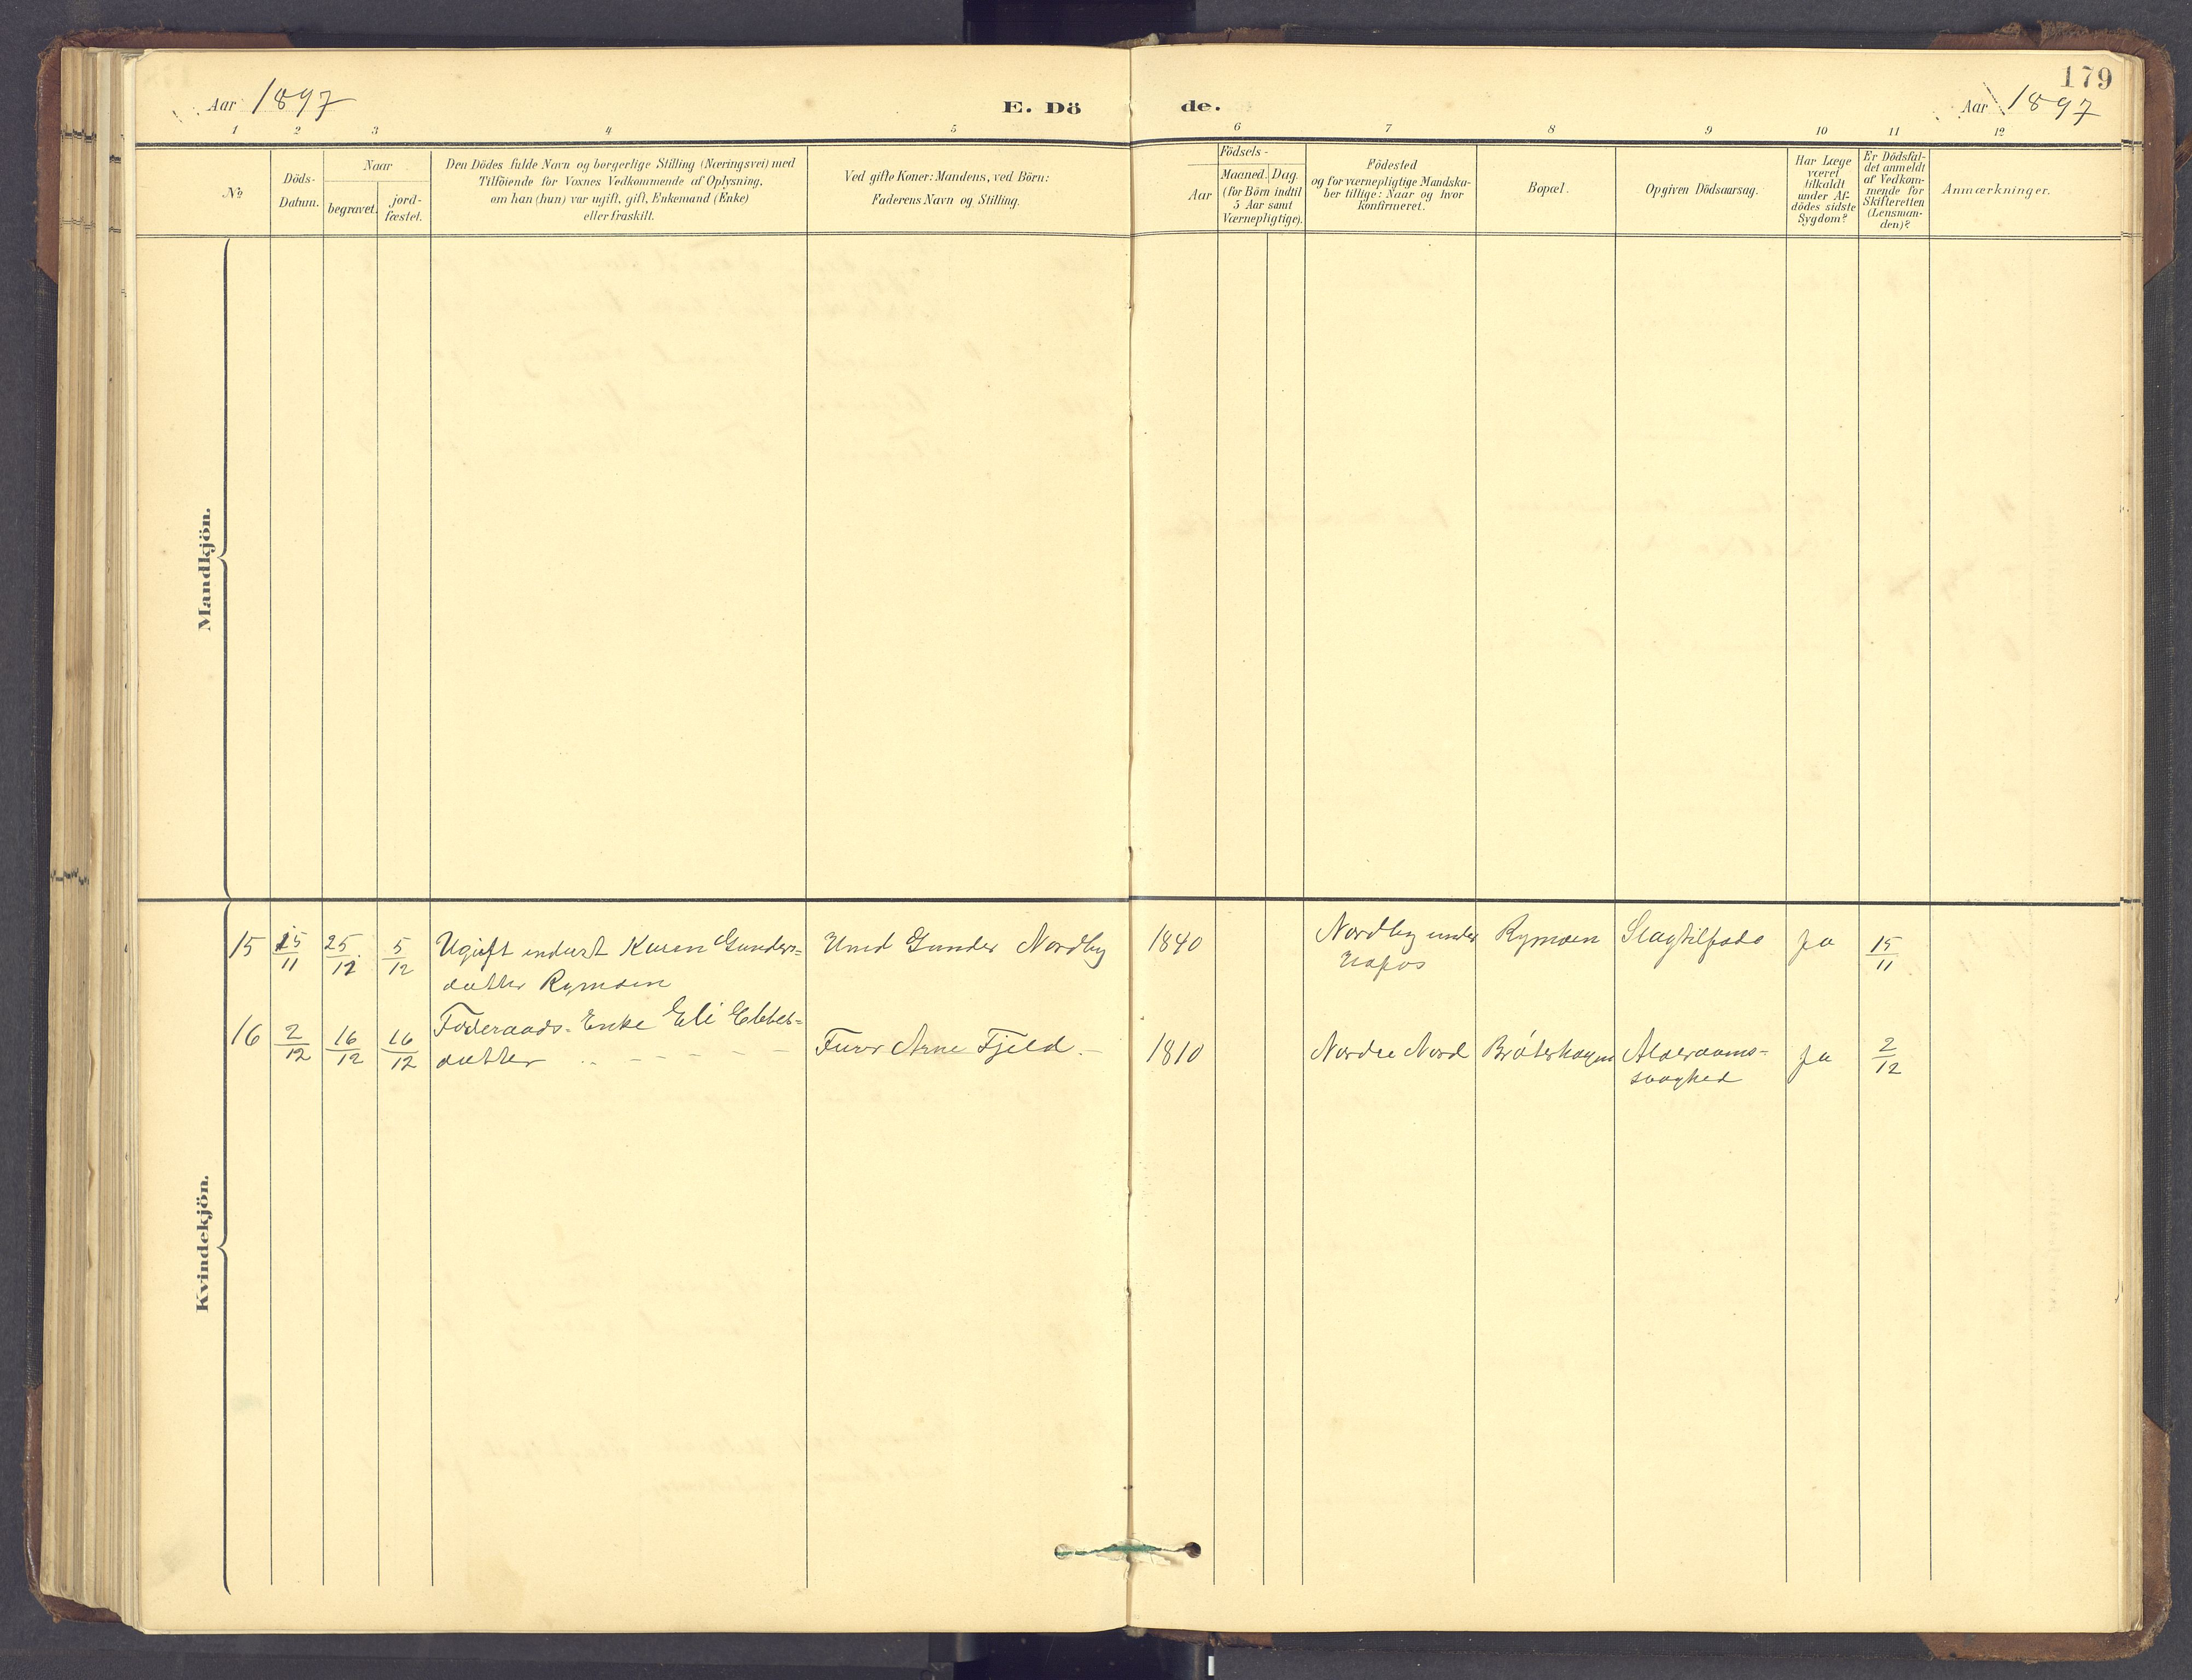 179
Aar 1897
E. Dö
de.
Aar 1897
1 2 3 4 5 6 7 8 9 10 11 12
No
Döds-
Datum.
Naar
begravet.
jord-
fæstet.
Den Dödes fulde Navn og borgerlige Stilling (Næringsvei) med
Tilföiende for Voxnes Vedkommende af Oplysning,
om han (hun) var ugift, gift, Enkemand (Enke)
eller fraskilt.
Ved gifte Koner: Mandens, ved Börn:
Faderens Navn og Stilling.
Födsels-
Aar
Maaned.
Dag.
(for Börn indtil
5 Aar samt
Værnepligtige).
Födested
og for værnepligtige Mandska-
ber tillige: Naar og hvor
konfirmeret.
Bopæl.
Opgiven Dödsaarsag.
Har Læge
været
tilkaldt
under Af-
dödes sidste
Sygdom?
Er Dödsfal-
det anmeldt
af Vedkom-
mende for
Skifteretten
(Lensman-
den)?
Anmærkninger.
Mandkjön.
Kvindekjön.
15 15/11 25/12 5/12 Ugift inderst Karen Gunders= Umd Gunder Nordby 1840 Nordby under Rymoen Slagtilfæde Ja 15/11
datter Rymoen
16 2/12 16/12 16/12 Föderaads-Enke Eli Ebbes= Furr Arne Fjeld.- 1810 Nordre Nord Bråtehaugen Alderdoms- Ja 2/12
datter
svaghed